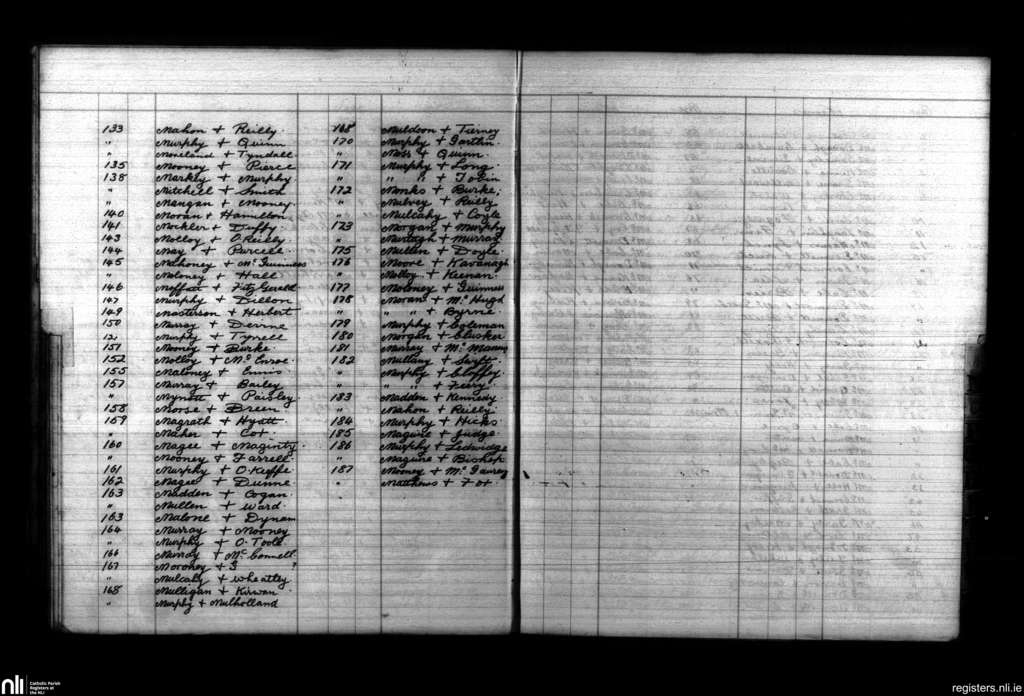 133 Mahon + Reilly.
" Murphy + Quinn
" Moreland + Tyndall.
135 Mooney + Pierc
138 Markly + Murphy.
" Mitchell + Smith
" Mangan + Mooney.
140 Moran + Hamilton
141 Mockler + Duffy.
143 Molloy + O'Reilly
144 May + Purcell
145 Mahoney + Mc Guinness
" Moloney + Hall
146 Moffatt + FitzGerald
147 Murphy + Dillon
149 Masterson + Herbert
150 Murray +
151 Murphy + Tyrell
151 Mooney + Burke.
152 Molloy + Mc Enroe
155 Maloney + Ennis
157 Murray + Bailey
" Mynott + Paisley
158 Morse + Breen
159 Magrath + Hyatt
" Maher + Cox.
160 Magee + Maginty.
" Mooney + Farrell
161 Murphy + O'Keffe.
162 Magee + Dunne
163 Madden + Cogan.
" Mullen + Ward.
163 Malone + Dynam
164 Murray + Mooney
" Murphy + O. Toole
166 Murray + Mc Connell
167 Moroney + G ?
" Mulcahy + Wheatley
168 Mulligan + Kirwan.
" Murphy + Mulholland
168 Muldoon + Tierney
170 Murphy +
" Moss + Quinn
171 Murphy + Long.
" " " + Tobin
172 Monks + Burke,
" Mulvey + Reilly
" Mulcahy + Coyle
173 Morgan + Murphy
" Murtagh + Murray
175 Mullen + Doyle
176 Moore + Kavanagh
" Molloy + Keenan.
177 Moloney + Guinness
178 Moran + Mc Hugh
" " " + Byrne
179 Murphy + Coleman
180 Morgan + Clusker
181 Murray + Mc Manus
182 Mullany + Swift
" Murphy +
" " " +
183 Madden + Kennedy
" Mahon + Reilly
184 Murphy + Hicks
185 Maguire + Judge
186 Murphy + Ledwidge
" Maguire + Bishop
187 Mooney + Mc
" Matthews + Fox.
nli
Catholic Parish
Registers at
the NLI
registers.nli.ie